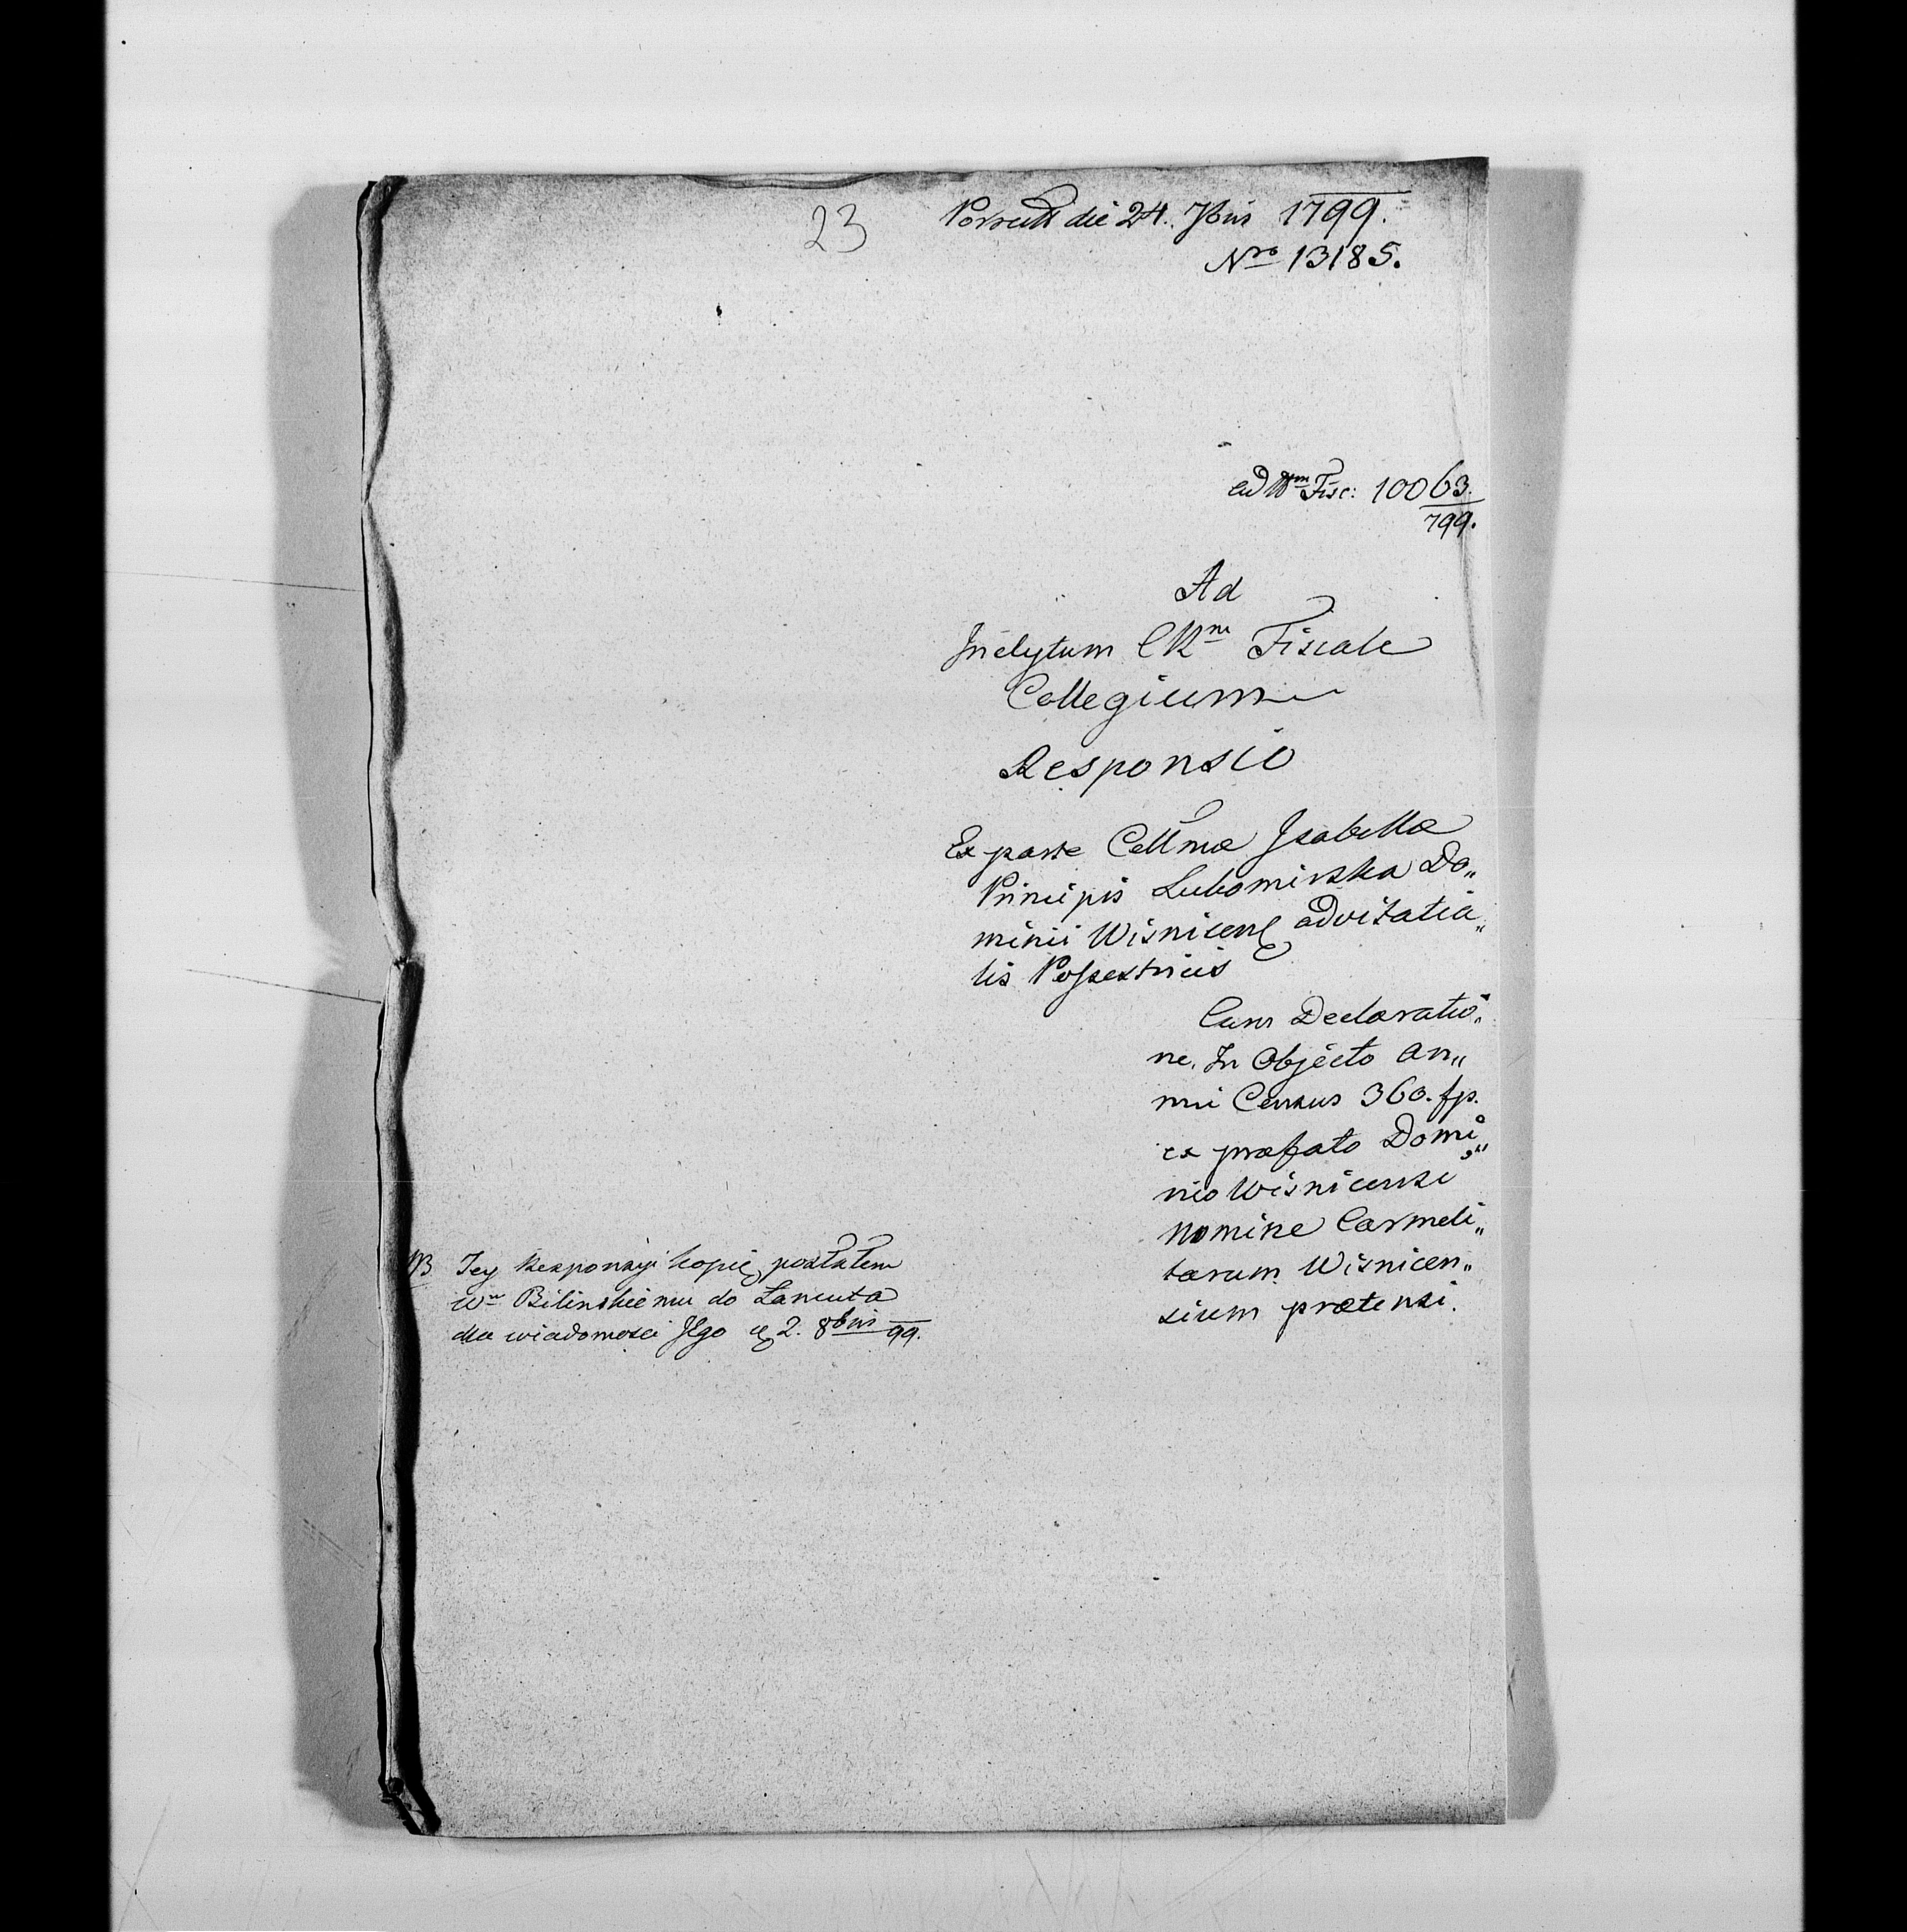 23
Porrect die 24. 7bris 1799.
Nro 13185.
ad Nm Fisc: 10063.
799.
Ad
Inclytum CRm Fiscale
Collegium
Responsio
Ex parte Cellmæ Isabellæ
Principis Lubomirska Do„
minii Wisnicens advitatia„
lis Possestricis
Cum Declaratio„
ne, In Objecto an„
nui Census 360. fp.
ex præfato Domi„
nio Wisnicensi
Nomine Carmeli„
tarum Wisnicen„
sium prætensi.
NB Tey Responsyi kopię posłałem
Wm Bilinskiemu do Łancuta
dla wiadomosci JEgo 2. 8bris 99.